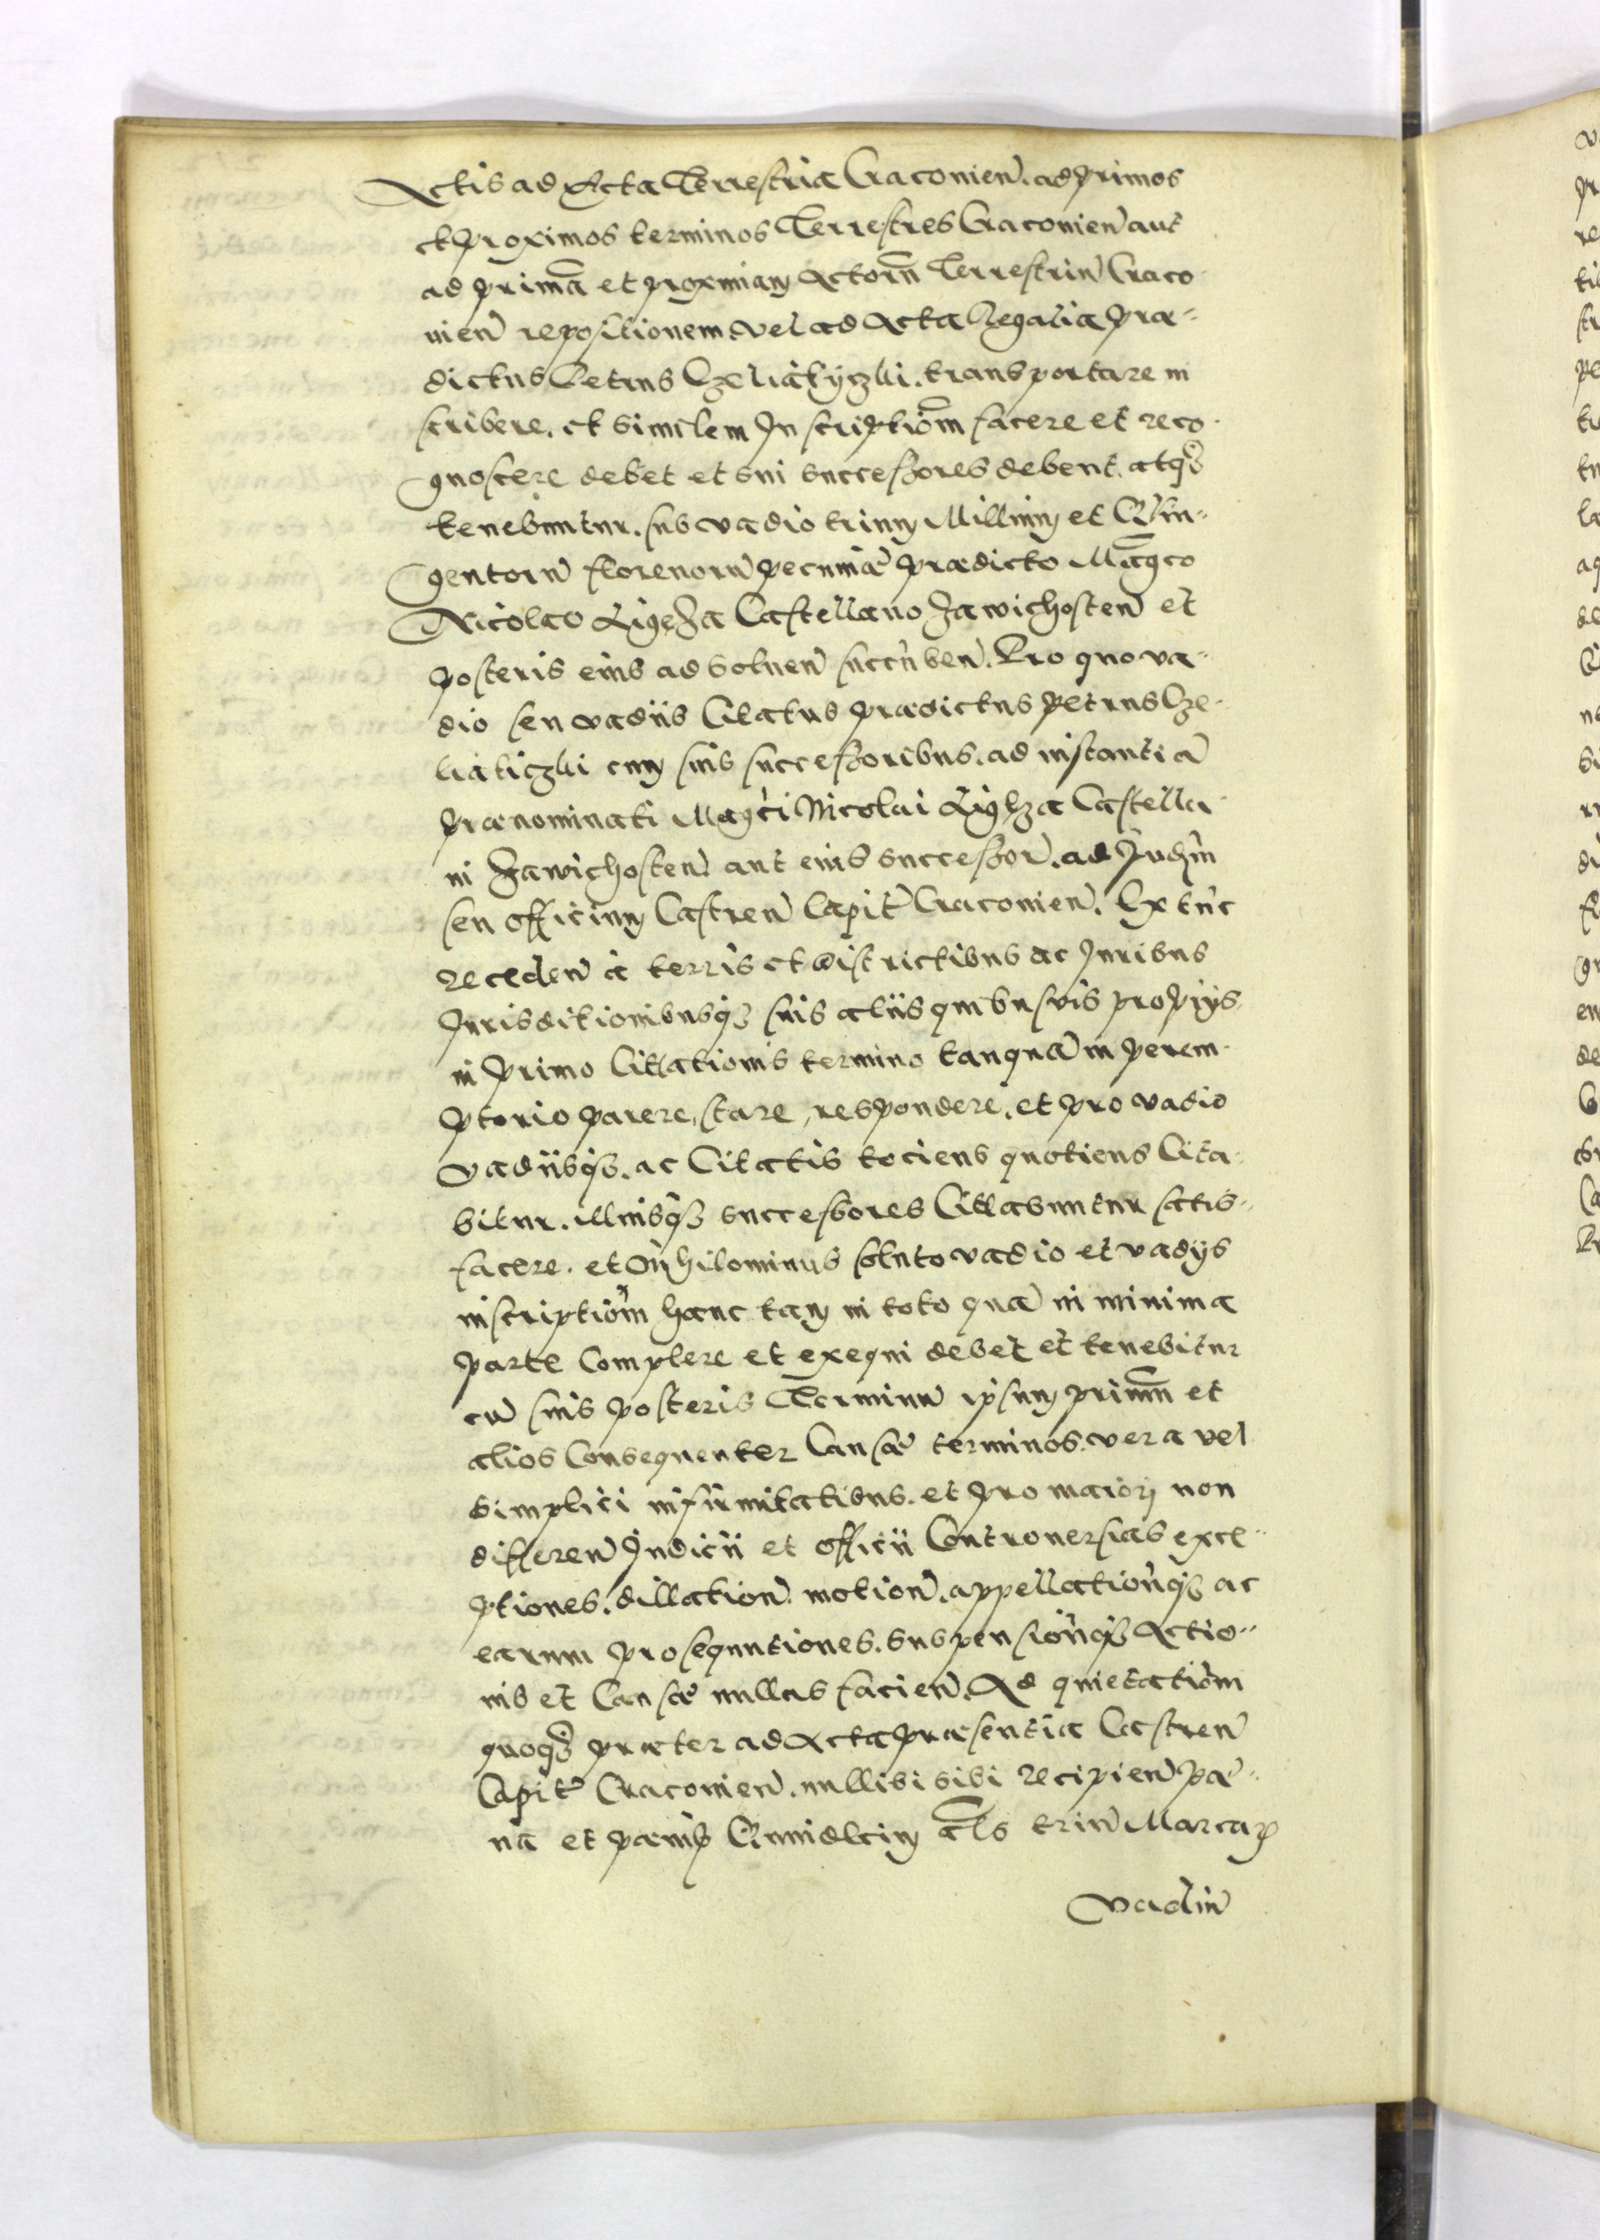 Actis ad Acta Terrestria Cracovien̄. ad primos
et proximos terminos Terrestres Cracovien̄ aut
ad primā et proximam Actorū Terrestriū Craco
vien̄ repositionem vel ad Acta Regalia præ-
dictus Petrus transportare in
scribere, et similem Inscriptiōm facere et reco
gnoscere debet et sui successores debent, atq̄
tenebuntur. sub vadio trium Millium et Quin-
gentorū florenorū pecuniæ prædicto Mag̃co
Nicolao Ligęza Castellano Zawichosten̄ et
posteris eius ad soluen̄ succūben̄. Pro quo va-
dio seu vadiis Citatus prædictus Petrus
cum suis successoribus. ad instantiā
prænominati Mag̃ci Nicolai Ligęza Castella
ni Zawichosten̄ aut eius successor̄. ad Judm̄
seu officium Castren̄ Capit̄ Cracovien̄. Ex tūc
receden̄ à terris et districtibus ac Juribus
Jurisditionibusq̄ suis aliis quibusvis propiys
in primo Citationis termino tanquā in perem
ptorio parere, stare, respondere, et pro vadio
vadiisq̄. ac Citatis tociens quotiens Cita
bitur. illiusq̄ successores Citabuntur satis-
facere. et nihilominus soluto vadio et vadys
inscriptiōm hanc tam in toto quā in minima
parte Complere et exequi debet et tenebitur
cū suis posteris Terminū ipsum primū et
alios Consequenter Causæ terminos. vera vel
simplici infirmitatibus. et pro maiori non
differen̄ Judicii et officii Controuersias exce-
ptiones. dillation̄. motion̄. appellationq̄ ac
earum prosequutiones. suspensionq̄ Actio-
nis et Causæ nullas facien̄. Ad quietatiōm
quoq̄ præter ad Acta præsentia Castren̄
Capit̄ Cracovien̄. nullibi sibi recipien̄ pæ-
nā et pænis als triū Marcarum
vadiū